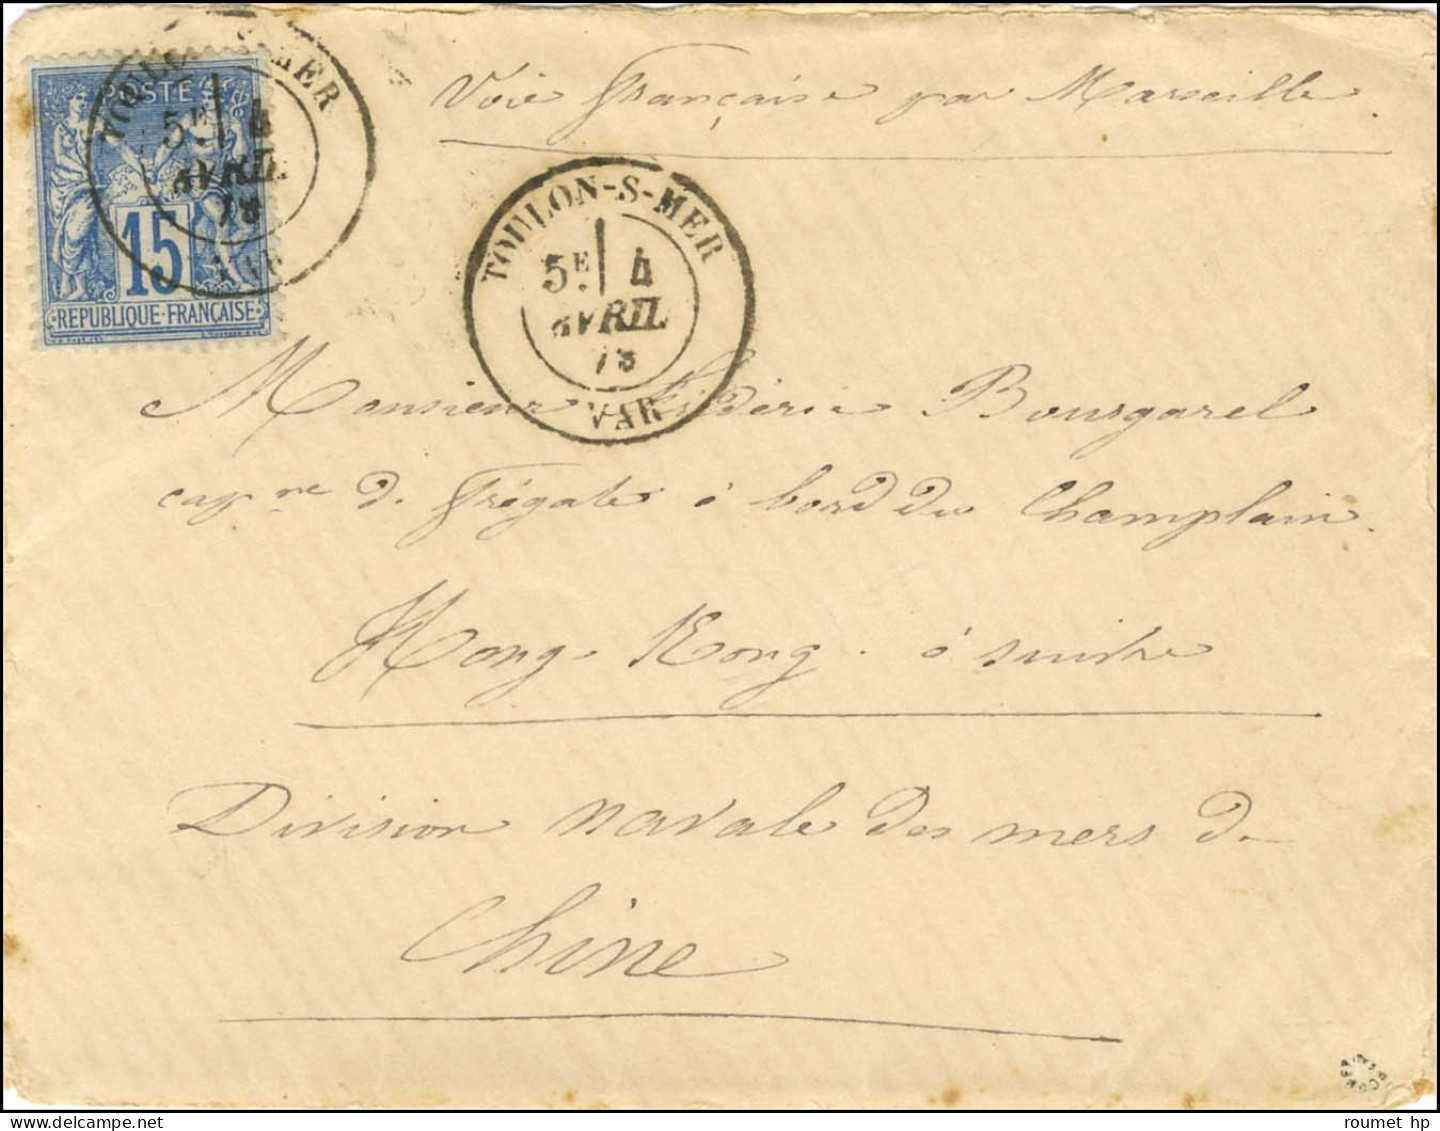 Voie française par Marseille
POSTE
15
REPUBLIQUE FRANÇAISE
TOULON-S-MER
5E 4
AVRIL
78
VAR
TOULON-S-MER
5E 4
AVRIL
78
VAR
Monsieur Frédéric Bourgarel
capne de frégate à bord du Champlain
Hong-Kong à suivre
Division navale des mers de
Chine
roumet hp